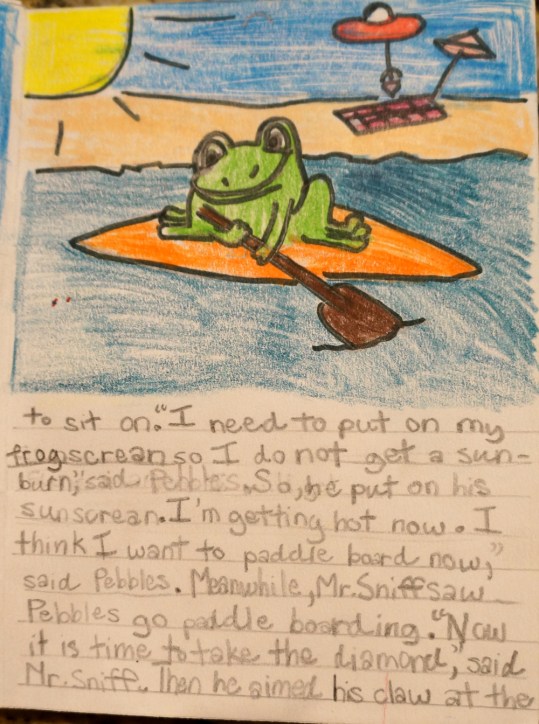 to sit on. "I need to put on my
frogscrean so I do not get a sun-
burn," said Pebbles. So, he put on his
sunscrean. I'm getting hot now. I
think I want to paddle board now,"
said Pebbles. Meanwhile, Mr. Sniff saw
Pebbles go paddle boarding. "Now
it is time to take the diamond", said
Mr. Sniff. Then he aimed his claw at the